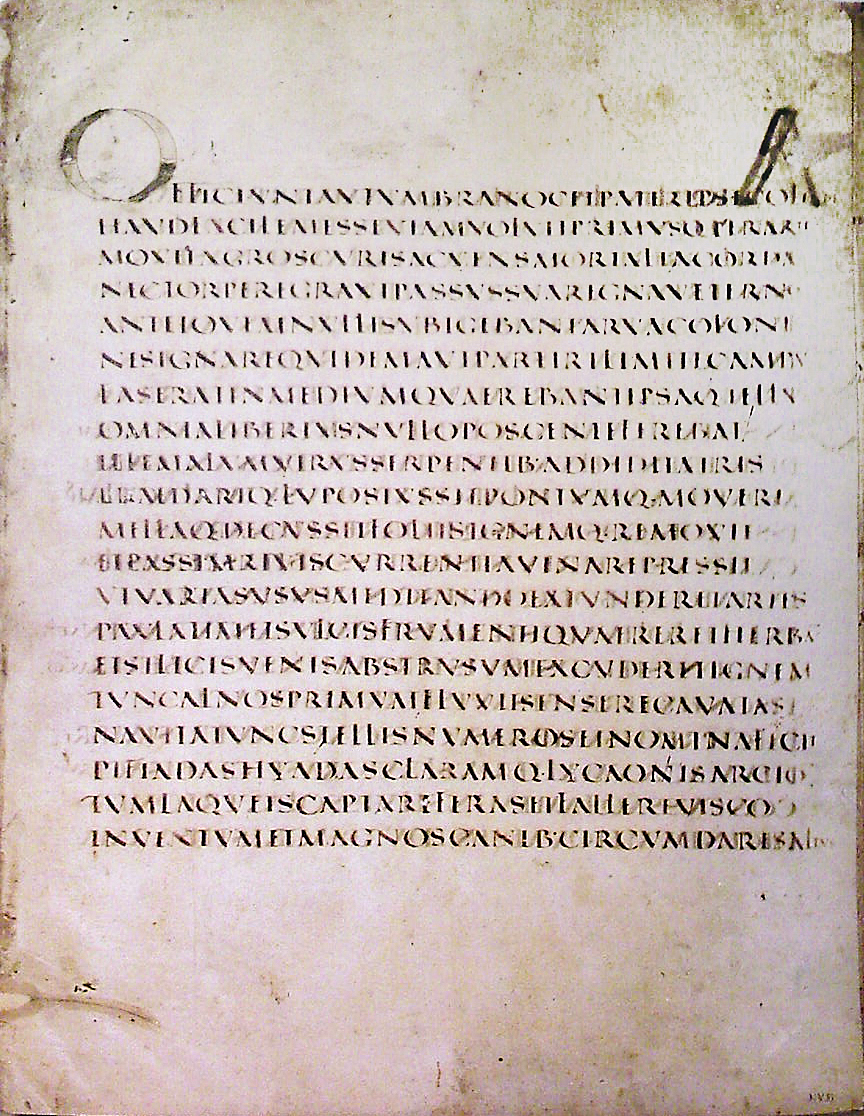 OFFICIVNTAVTVMBRANOCETPATERIPSECOLEN
HAVDFACILEMESSEVIAMVOLVITPRIMVSQ·PERARTE
MOVITAGROSCVRISACVENSMORTALIACORDA
NECTORPEREGRAVIPASSVSSVAREGNAVETERNO
ANTEIOVEMNVLLISVBIGEBANTARVACOLONI
NESIGNAREQVIDEMAVTPARTIRILIMITECAMPV
FASERATINMEDIVMQVAEREBANTIPSAQ·TELLVS
OMNIALIBERIVSNVLLOPOSCENTEFEREBAT
ILLEMALVMVIRVSSERPENTIB·ADDIDITATRIS
PRAEDARIQ·LVPOSIVSSITPONTVMQ·MOVERI
MELLAQ·DECVSSITFOLIISIGNEMQ·REMOVIT
ETPASSIMRIVISCVRRENTIAVINAREPRESSIT
VTVARIASVSVSMEDITANDOEXTVNDERETARTIS
PAVLATIMETSVLCISFRVMENTIQVAERERETHERBA
ETSILICISVENISABSTRVSVMEXCVDERETIGNEM
TVNCALNOSPRIMVMFLVVIISENSERECAVATAS
NAVITATVNCSTELLISNVMEROSETNOMINAFECIT
PLEIADASHYADASCLARAMQ·LYCAONISARCTO
TVMLAQVEISCAPTAREFERASETFALLEREVISCO
INVENTVMETMAGNOSCANIB·CIRCVMDARESALTVS